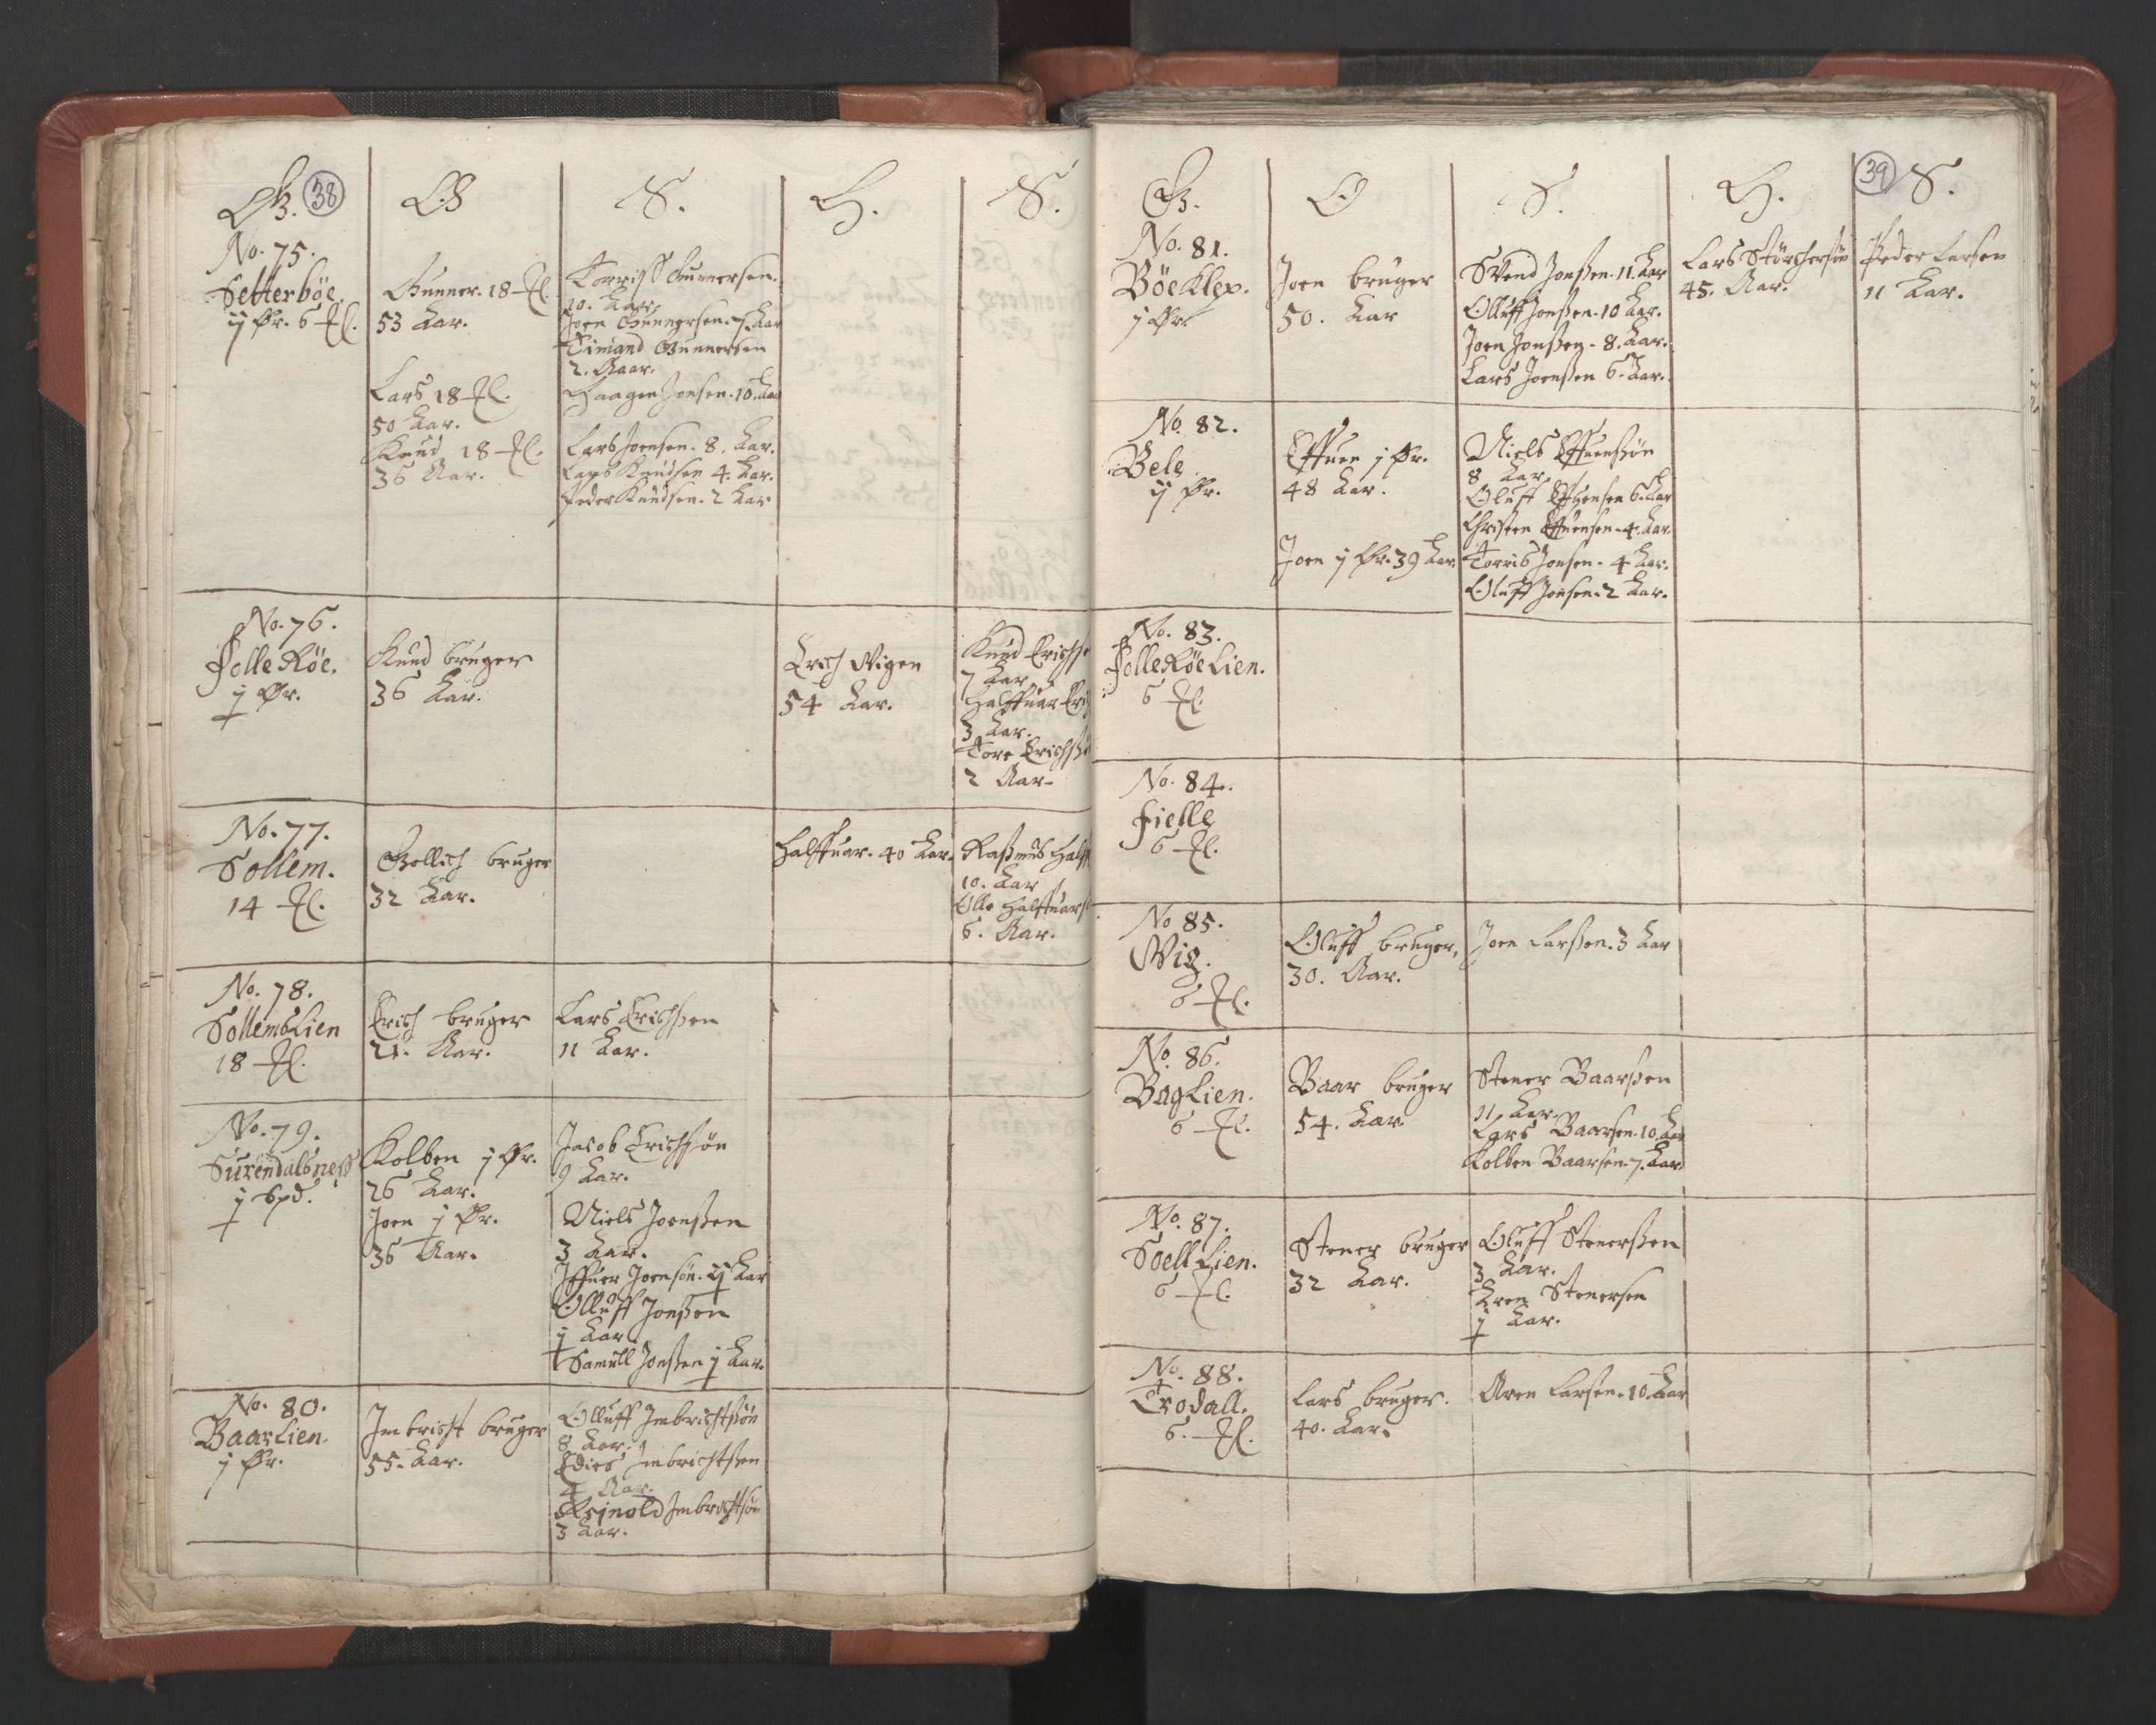 G. 38 O S. H. S.
No. 75.
Setterbøe.
ij Ør. 6 Al.
Gunner. 18 Al.
53 Aar.
Lars 18 Al.
50 Aar.
Knud 18 Al.
36 Aar.
Torriss Gunnersen.
10. Aar,
Joen Gunnersen. 7. Aar
Timand Gunnersen
2. Aaar.
Haagen Jonsen. 10. Aar
Lars Joensen. 8. Aar.
Lars Knudsen 4. Aar.
Peder Knudsen. 2 Aar
No. 76.
PolleRøe.
j Ør.
Knud bruger
36 Aar.
Erich Wigen
54 Aar.
Knud Erichs
7 Aar
Halffuar Eri
3 Aar.
Tore Erichsø
2 Aar
No. 77.
Sollem.
14 Al.
Gollich bruger
32 Aar.
Halffuar. 40 Aar.
Rasmus Halff
10. Aar
Olle Halffuars
6. Aar.
No. 78.
SollemsLien
18 Al.
Erich bruger
21. Aar.
Lars Erichsen
11 Aar.
No. 79.
Surendalsness
j Spd.
Kolben j Ør.
26 Aar.
Joen j Ør.
36 Aar.
Jacob Erichsøn
9 Aar.
Niels Joensen
3 Aar.
Iffuer Joensøn. ij Aar
Olluff Jonsen
j Aar
Samull Jonsen j Aar.
No. 80.
BaarLien.
j Ør.
Imbricht bruger
55. Aar.
Olluff Imbrichtsøn
8 Aar.
Imbrichtsen
4 Aar.
Reinold Imbrichtsøn
3 Aar.
G. O S. H. 39 S.
No. 81.
BøeKlep.
j Ør.
Joen bruger
50. Aar
Svend Jonsen. 11. Aar
Olluff Jonsen. 10 Aar.
Joen Jonsen. 8. Aar.
Lars Joensen 6. Aar.
Lars Størchersøn
45. Aar.
Peder Larsen
11 Aar.
No. 82.
Bele
ij Ør.
Effuen j Ør.
48 Aar.
Joen j Ør. 39 Aar.
Niels Effuensøn
8 Aar
Oluff Effuensen 6. Aar
Christen Effuensen. 4. Aar.
Torris Jonsen. 4 Aar.
Oluff Jonsen. 2 Aar.
No. 83.
PolleRøeLien.
6 Al.
No. 84.
Fielle
6 Al.
No 85.
Wig.
6 Al.
Oluff bruger,
30. Aar.
Joen Larsen. 3 Aar
No. 86.
BagLien.
6 Al.
Baar bruger
54. Aar
Stener Baarsen
11. Aar.
Lars Baarsen. 10. Aar
Kolben Baarsen. 7. Aar
No. 87.
SoellLien.
6 Al.
Stener bruger
32 Aar.
Oluff Stenersen
3 Aar.
Aren Stenersen
j Aar.
No. 88.
Trodall.
6. Al.
Lars bruger.
40. Aar.
Aren Larsen. 10. Aar